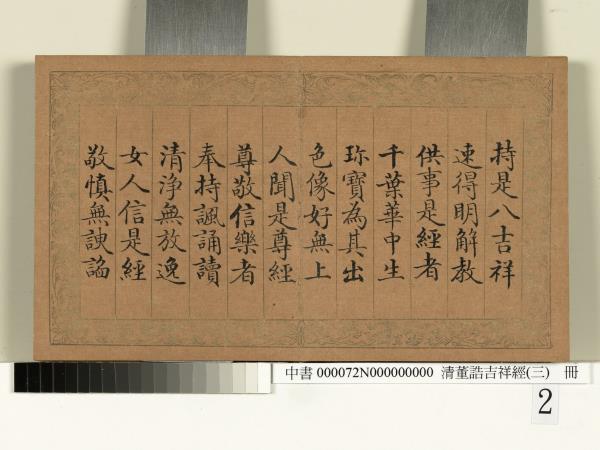 持是八吉祥
速得明解教
供事是經者
千葉華中生
珎寶為其出
色像好無上
人聞是尊經
尊敬信樂者
奉持諷誦讀
清淨無放逸
女人信是經
敬慎無諛諂
中書 000072N000000000 清董誥吉祥經(三) 冊
2